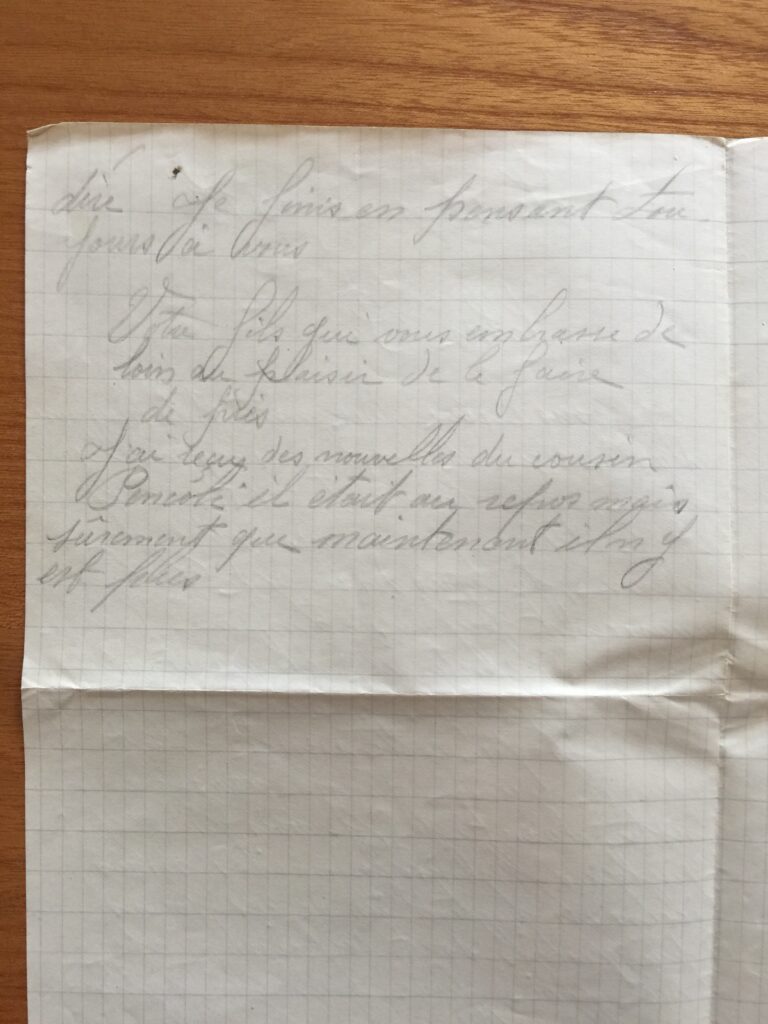 dire Je finis en pensant tou
jours à vous
Votre fils qui vous embrasse de
loin au plaisir de le faire
de près
J'ai reçu des nouvelles du cousin
il était au repos mais
sûrement que maintenant il n y
est plus